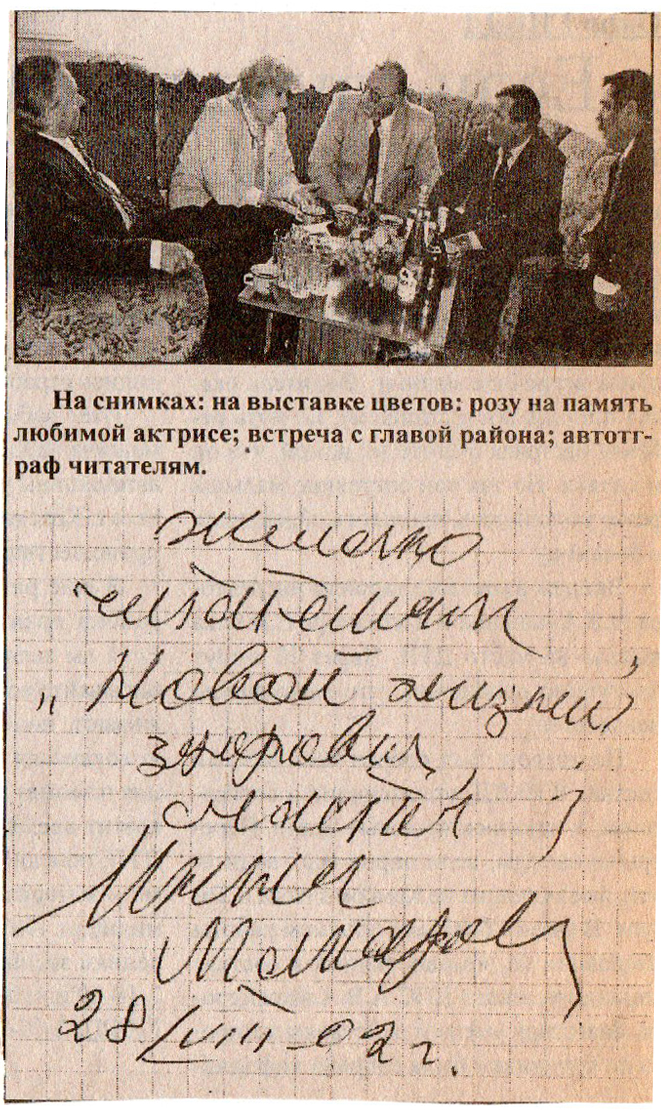 На снимках: на выставке цветов: розу на память
любимой актрисе; встреча с главой района; автотг-
раф читателям.
желаю
читателям
„Новой жизни"
здоровья,
счастья
Инна
Макарова
28/VIII-02 г.